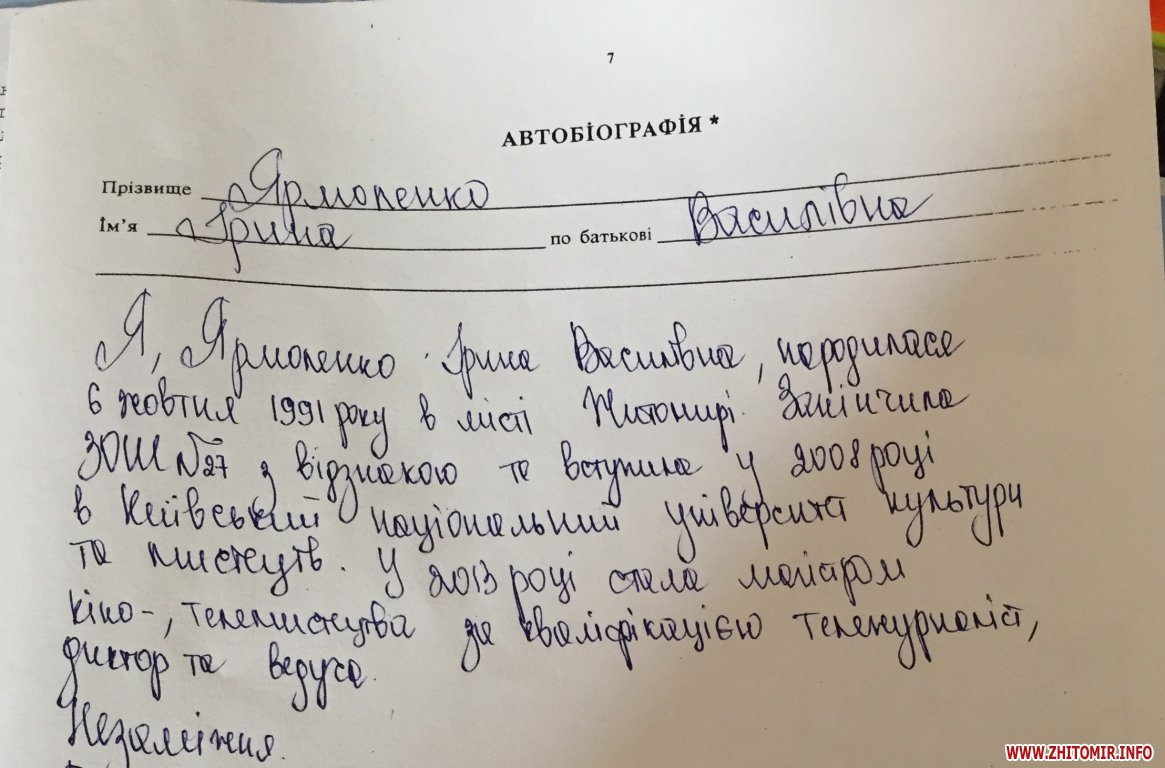 7
АВТОБІОГРАФІЯ *
Прізвище Ярмоленко
Ім'я Ірина по батькові Василівна
Я, Ярмоленко Ірина Василівна, народилася
6 жовтня 1991 року в місті Житомирі. Закінчила
ЗОШ №27 з відзнакою та вступила у 2008 році
в Київський національний університет культури
та мистецтв. У 2013 році стала магістром
кіно-, телемистецтва за кваліфікацією тележурналіст,
диктор та ведуча.
Незаміжня.
WWW.ZHITOMIR.INFO